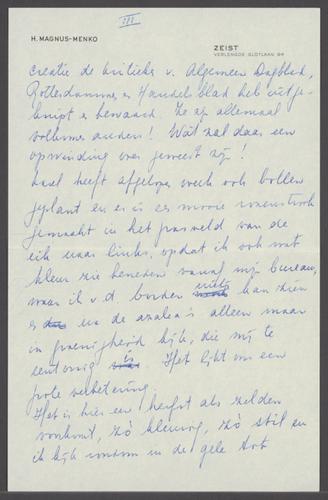 III.
H. MAGNUS-MENKO
ZEIST
VERLENGDE SLOTLAAN 94
creatie de kritieks v. Algemeen Dagblad,
Rotterdammer en Handelsblad heb uitge-
knipt en bewaard. Ze zijn allemaal
volkomen anders! Wat zal daar een
opwinding over geweest zijn!
heeft afgelopen week ook bollen
geplant en er is een mooie rozenstrook
gemaakt in het grasveld van de
eik naar links, opdat ik ook wat
kleur zie beneden vanaf mijn bureau,
waar ik v.d. border niets kan zien
en na de azalea's alleen maar
in groenigheid kijk, die mij te
eentonig is. Het lijkt ons een
grote verbetering.
Het is hier een herfst als zelden
voorkomt, zó kleurig, zó stil en
ik kijk rondom in de gele